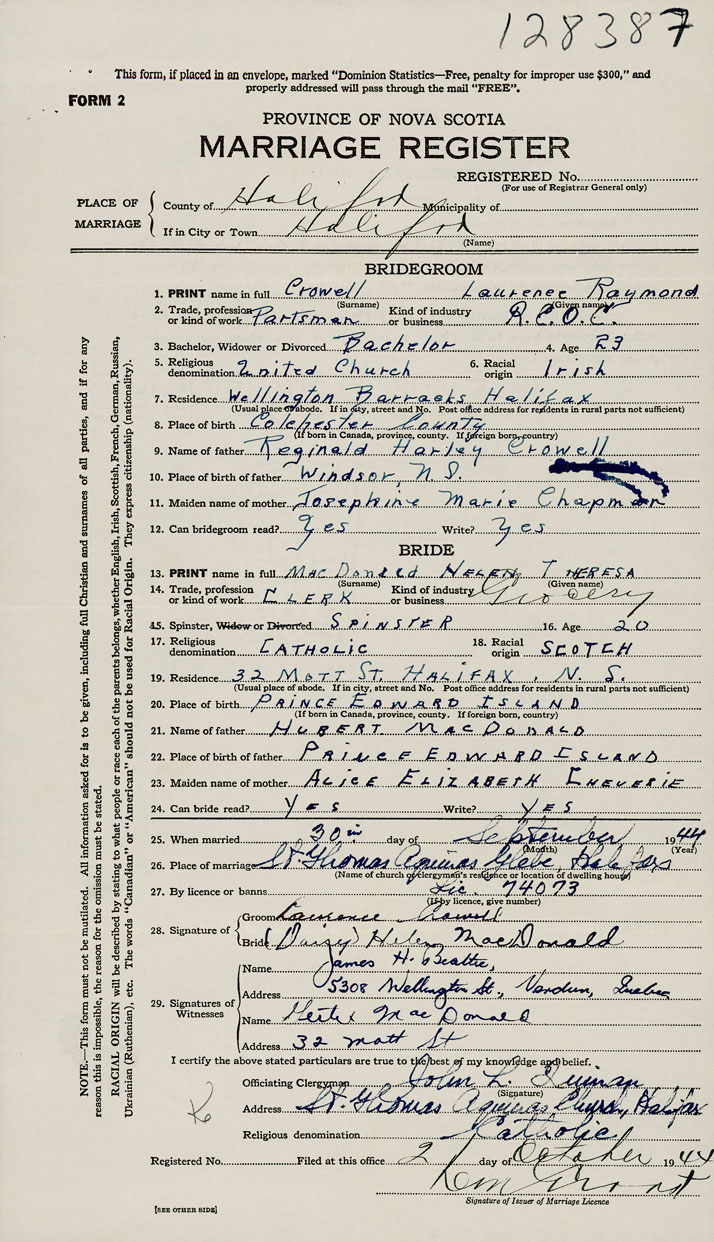 128387
This form, if placed in an envelope, marked "Dominion Statistics—Free, penalty for improper use $300," and
properly addressed will pass through the mail "FREE".
FORM 2
PROVINCE OF NOVA SCOTIA
MARRIAGE REGISTER
REGISTERED No.
(For use of Registrar General only)
PLACE OF MARRIAGE
County of Halifax Municipality of
If in City or Town Halifax
(Name)
BRIDEGROOM
1. PRINT name in full Crowell Laurence Raymond
(Surname) (Given name)
2. Trade, profession or kind of work Partsman Kind of industry or business R.C.O.C.
3. Bachelor, Widower or Divorced Bachelor 4. Age 23
5. Religious denomination United Church 6. Racial origin Irish
7. Residence Wellington Barracks Halifax
(Usual place of abode. If in city, street and No. Post office address for residents in rural parts not sufficient)
8. Place of birth Colchester County
(If born in Canada, province, county. If foreign born, country)
9. Name of father Reginald Harley Crowell
10. Place of birth of father Windsor, N.S.
11. Maiden name of mother Josephine Marie Chapman
12. Can bridegroom read? Yes Write? Yes
BRIDE
13. PRINT name in full MacDonald Helen Theresa
(Surname) (Given name)
14. Trade, profession or kind of work CLERK Kind of industry or business Grocery
15. Spinster, Widow or Divorced SPINSTER 16. Age 20
17. Religious denomination CATHOLIC 18. Racial origin SCOTCH
19. Residence 32 MOTT ST. HALIFAX, N. S.
(Usual place of abode. If in city, street and No. Post office address for residents in rural parts not sufficient)
20. Place of birth PRINCE EDWARD ISLAND
(If born in Canada, province, county. If foreign born, country)
21. Name of father HUBERT MACDONALD
22. Place of birth of father PRINCE EDWARD ISLAND
23. Maiden name of mother ALICE ELIZABETH CHEVERIE
24. Can bride read? YES Write? YES
25. When married 30 day of September 1944
(Month) (Year)
26. Place of marriage St. Thomas Aquinas Glebe, Halifax
(Name of church or clergyman's residence or location of dwelling house)
27. By licence or banns Lic. 74073
(If by licence, give number)
28. Signature of
Groom Laurence Crowell
Bride (Daisy) Helen MacDonald
29. Signatures of Witnesses
Name James H. Beattie,
Address 5308 Wellington St., Verdun, Quebec
Name MacDonald
Address 32 Mott St
I certify the above stated particulars are true to the best of my knowledge and belief.
Officiating Clergyman John L.
(Signature)
Address St. Thomas Aquinas Church, Halifax
Religious denomination Catholic
Registered No. Filed at this office 2 day of October 1944
Signature of Issuer of Marriage Licence
[SEE OTHER SIDE]
NOTE.—This form must not be mutilated. All information asked for is to be given, including full Christian and surnames of all parties, and if for any
reason this is impossible, the reason for the omission must be stated.
RACIAL ORIGIN will be described by stating to what people or race each of the parents belongs, whether English, Irish, Scottish, French, German, Russian,
Ukrainian (Ruthenian), etc. The words "Canadian" or "American" should not be used for Racial Origin. They express citizenship (nationality).